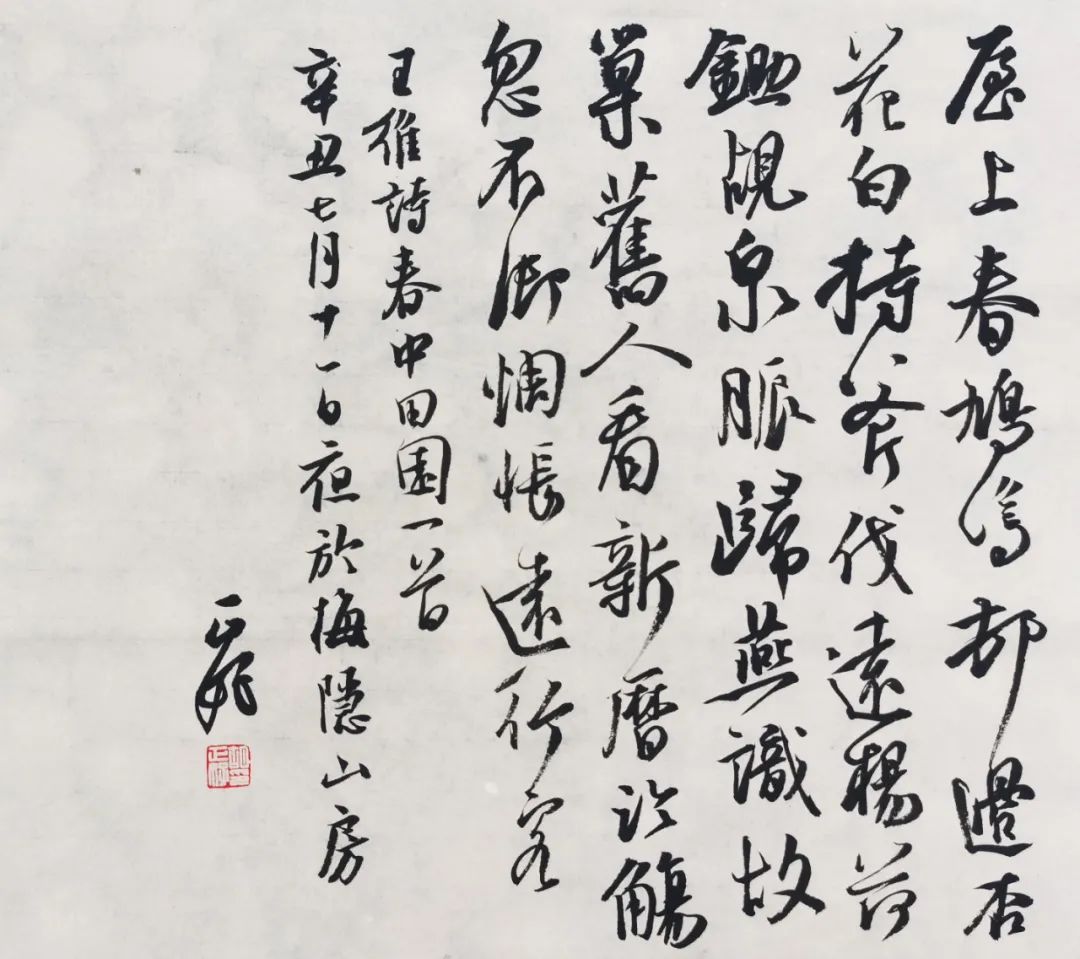 屋上春鳩鳴邨邊杏
花白持斧伐遠楊荷
鋤覘泉脈歸燕識故
巢舊人看新曆臨觴
忽不御惆悵遠行客
王維詩春中田園一首
辛丑七月十一日夜於梅隱山房